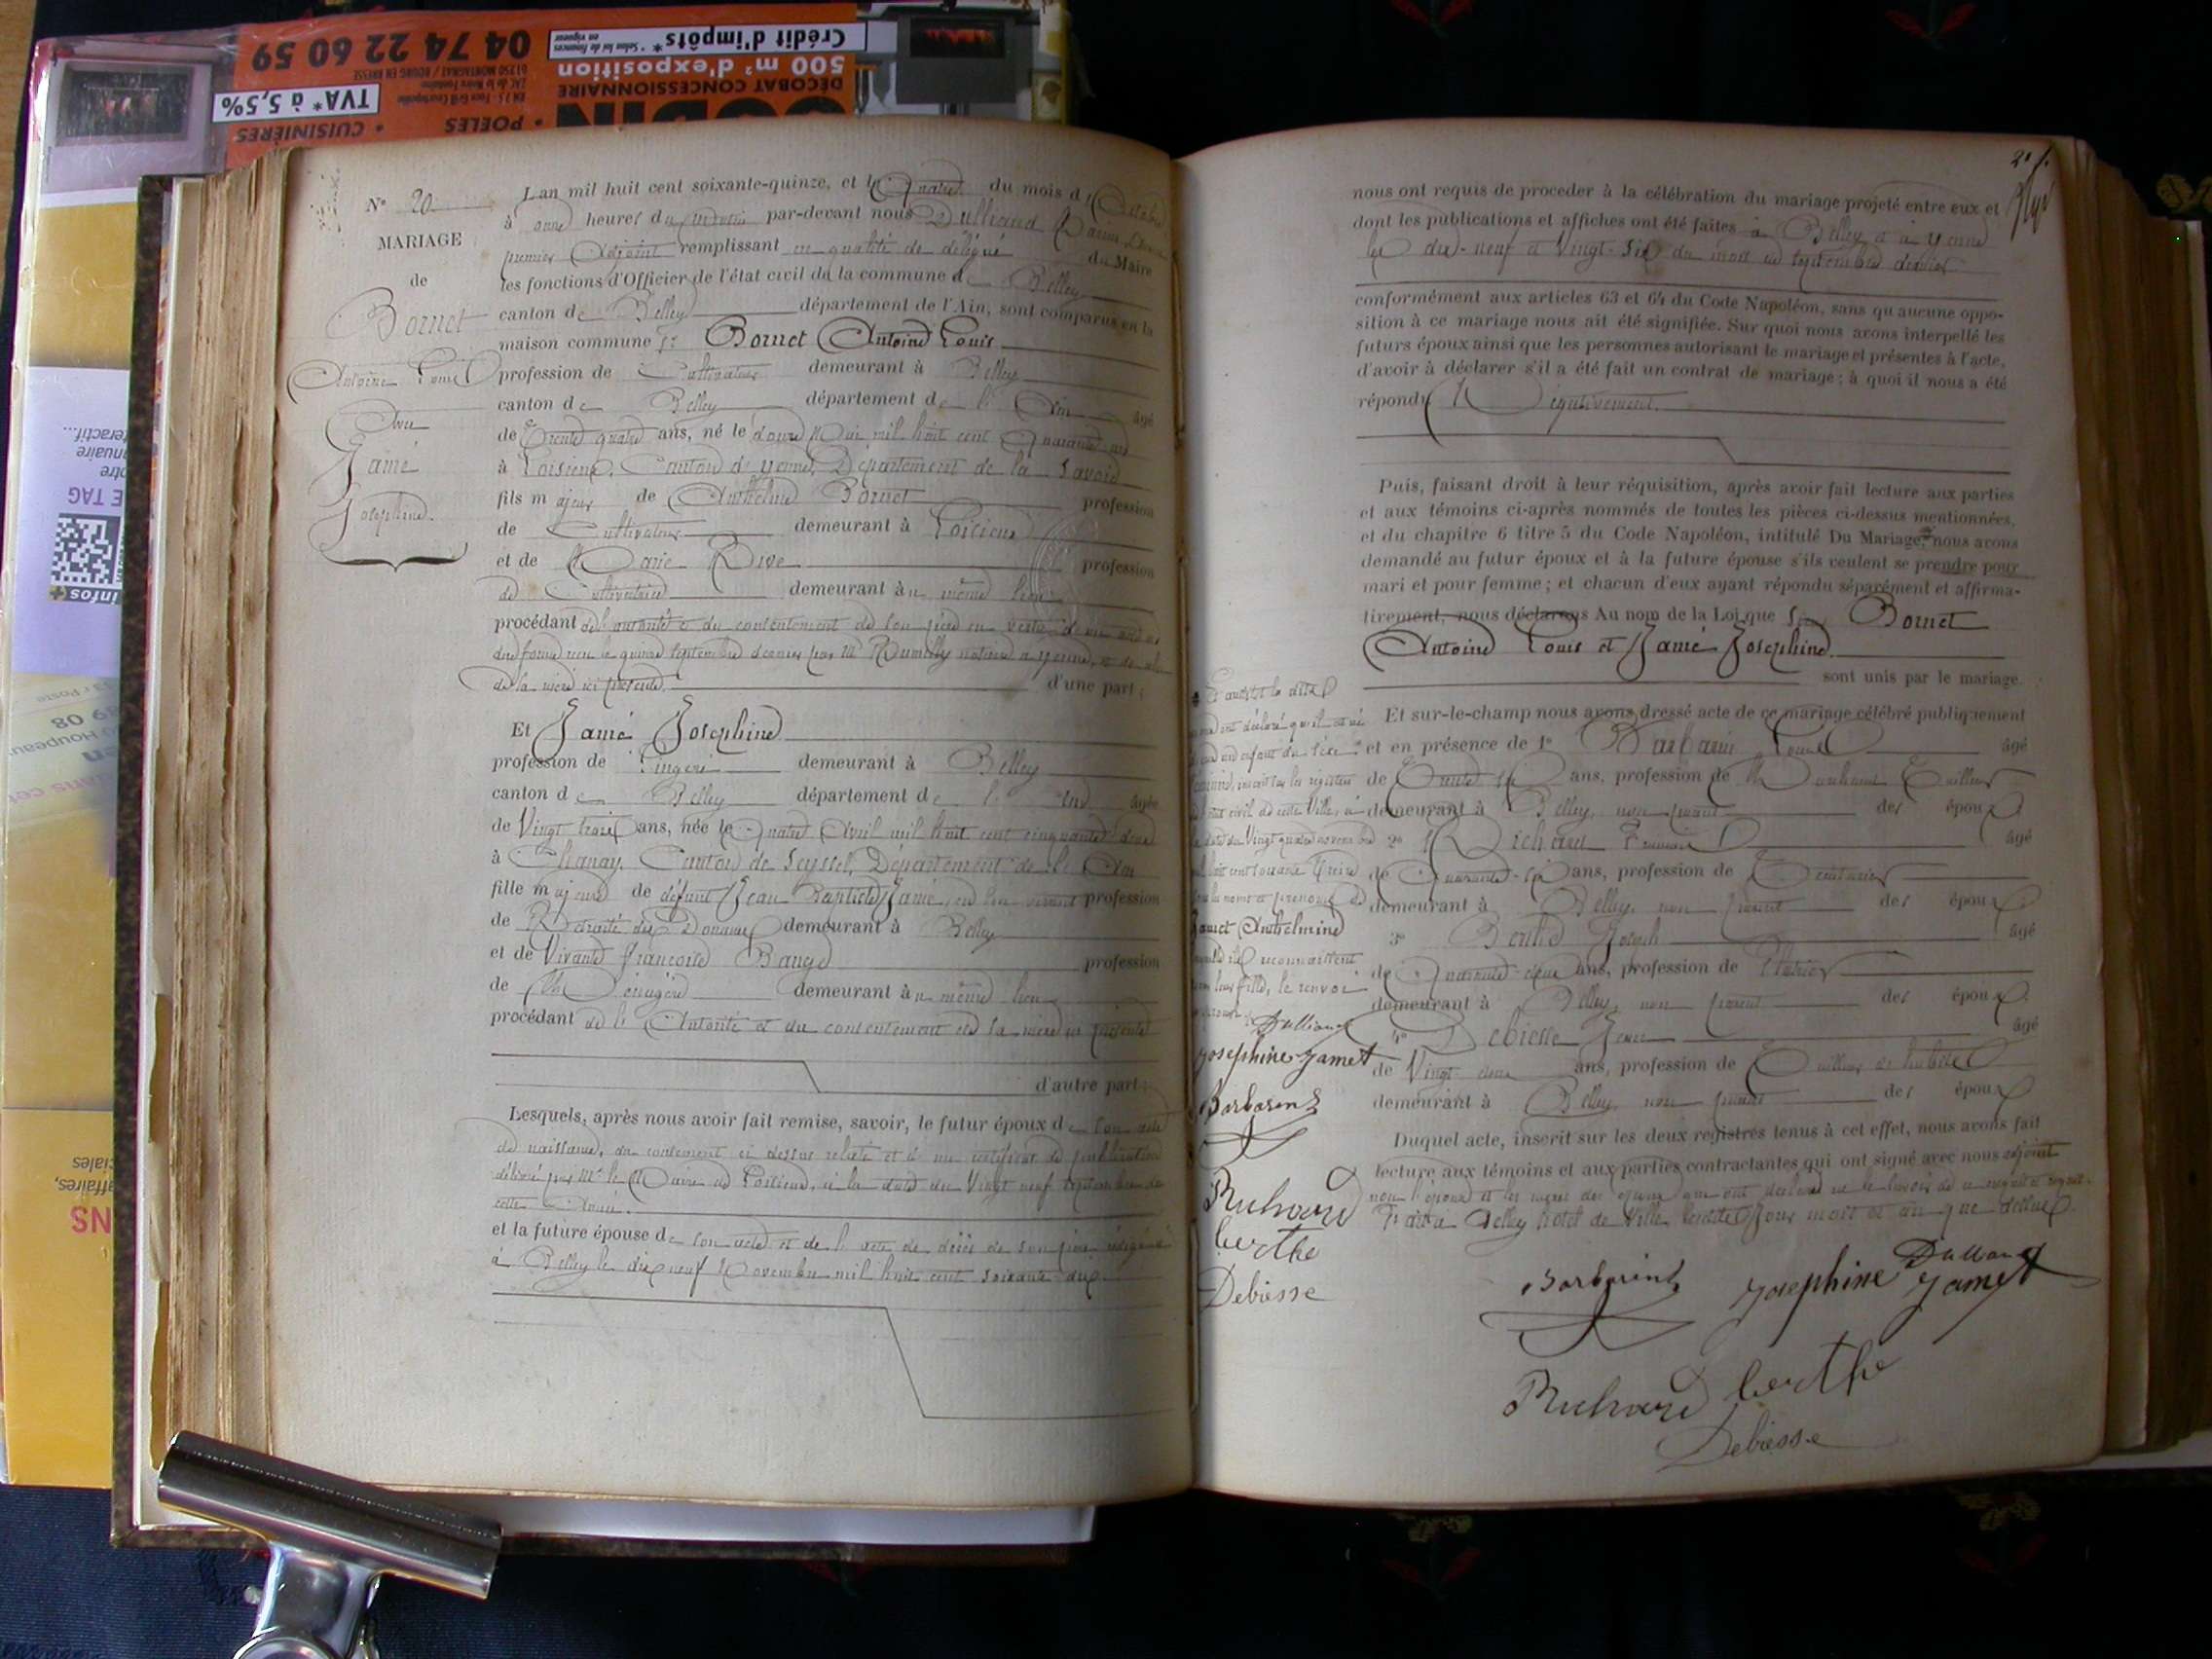 04 74 22 60 59
Crédit d'impôts*
* Selon loi de finances en vigueur
500 m² d'exposition
DÉCOBAT CONCESSIONNAIRE
TVA* à 5,5%
• CUISINIÈRES
• POÊLES
TAG
infos+
N° 20
MARIAGE
de
Bornet
Antoine Louis
Avec
Jamé
Josephine
L'an mil huit cent soixante-quinze, et le quatre du mois d'Octobre
à onze heures du matin par-devant nous Dulliand
premier Adjoint remplissant en qualité de délégué du Maire
les fonctions d'Officier de l'état civil de la commune de Belley
canton de Belley département de l'Ain, sont comparus en la
maison commune Sr Bornet Antoine Louis
profession de Cultivateur demeurant à Belley
canton de Belley département de l'Ain âgé
de trente quatre ans, né le douze Mai mil huit cent quarante un
à Loisieux, Canton de Yenne, Département de la Savoie
fils majeur de Anthelme Bornet profession
de Cultivateur demeurant à Loisieux
et de Marie Rive profession
de Cultivatrice demeurant au même lieu
procédant de l'autorité et du consentement de son père en vertu
reçu le quinze septembre dernier par Me Rumilly notaire à Yenne, et de celui
de la mère ici présente d'une part ;
Et Jamé Josephine
profession de Lingère demeurant à Belley
canton de Belley département de l'Ain âgée
de Vingt trois ans, née le quatre Avril mil huit cent cinquante deux
à Chanay, Canton de Seyssel, Département de l'Ain
fille majeure de défunt Jean Baptiste Jamé, en son vivant profession
de Retraité des Douanes demeurant à Belley
et de Vivante Françoise Bauge profession
de Ménagère demeurant au même lieu
procédant de l'Autorité et du consentement de sa mère ici présente
d'autre part ;
Lesquels, après nous avoir fait remise, savoir, le futur époux de son acte
de naissance, du contement ci dessus relaté et d'un certificat de publication
délivré par Mr le Maire de Loisieux, à la date du Vingt neuf septembre de
cette année.
et la future épouse de son acte et de l'acte de décès de son père rédigé
à Belley le dix neuf Novembre mil huit cent soixante dix
nous ont requis de procéder à la célébration du mariage projeté entre eux et
dont les publications et affiches ont été faites à Belley et à Yenne
les dix-neuf et Vingt-six du mois de septembre dernier
conformément aux articles 63 et 64 du Code Napoléon, sans qu'aucune oppo-
sition à ce mariage nous ait été signifiée. Sur quoi nous avons interpellé les
futurs époux ainsi que les personnes autorisant le mariage et présentes à l'acte,
d'avoir à déclarer s'il a été fait un contrat de mariage ; à quoi il nous a été
répondu Négativement.
Puis, faisant droit à leur réquisition, après avoir fait lecture aux parties
et aux témoins ci-après nommés de toutes les pièces ci-dessus mentionnées,
et du chapitre 6 titre 5 du Code Napoléon, intitulé Du Mariage, nous avons
demandé au futur époux et à la future épouse s'ils veulent se prendre pour
mari et pour femme ; et chacun d'eux ayant répondu séparément et affirma-
tivement, nous déclarons Au nom de la Loi que Srs Bornet
Antoine Louis et Jamé Josephine
sont unis par le mariage.
Et sur-le-champ nous avons dressé acte de ce mariage célébré publiquement
et en présence de 1° Barbarin Louis âgé
de Trente six ans, profession de Marchand Tailleur
demeurant à Belley, non parent des époux
2° Richard âgé
de Quarante-six ans, profession de
demeurant à Belley, non parent des époux
3° Berthe Joseph âgé
de Quarante-deux ans, profession de Plâtrier
demeurant à Belley, non parent des époux
4° Debiesse Jean âgé
de Vingt deux ans, profession de Tailleur de habits
demeurant à Belley, non parent des époux
Duquel acte, inscrit sur les deux registres tenus à cet effet, nous avons fait
lecture aux témoins et aux parties contractantes qui ont signé avec nous adjoint
non l'époux et les mères des époux qui ont déclaré ne le savoir de ce requis
Fait à Belley hôtel de Ville lesdits jour mois et an que dessus.
ont déclaré qu'il est né
enfant du sexe
féminin, inscrit sur les registres
de l'état civil de cette Ville, à
la date du Vingt quatre novembre
mil huit cent soixante treize
sous les noms et prénoms de
Jamet Anthelmine
qu'ils reconnaissent
pour leur fille, le renvoi
approuvé
Dulliand
Josephine Jamet
Barbarin
Richard
berthe
Debiesse
Barbarin
Dulliand
Josephine Jamet
Richard berthe
Debiesse